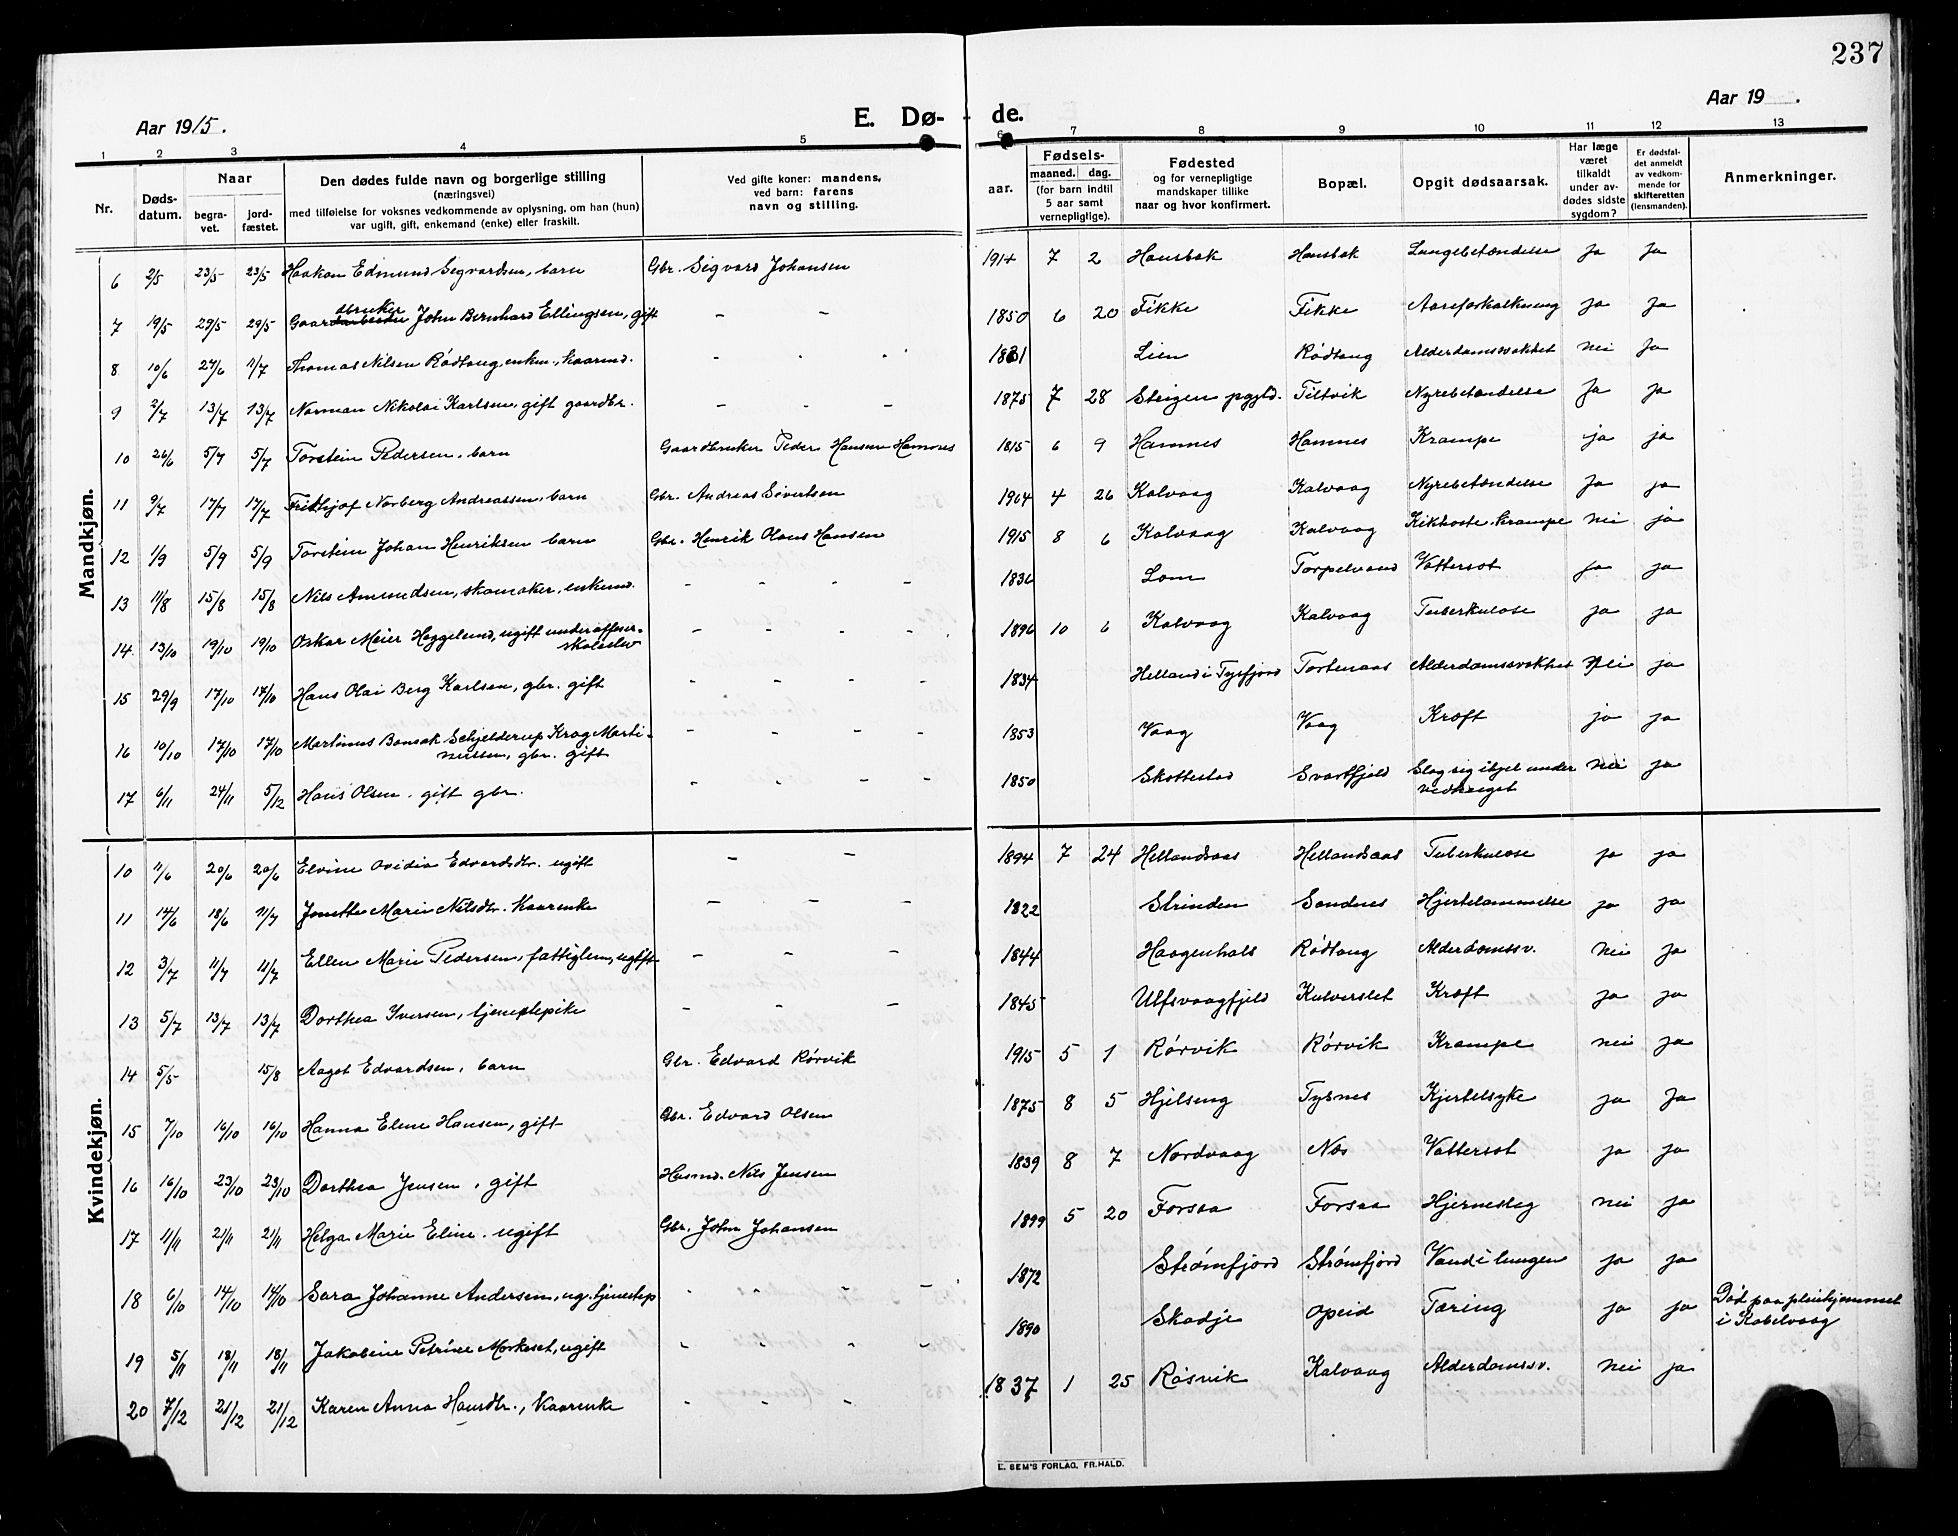 237
Aar 1915.
E. Dø- de.
Aar 19 .
1 2 3 4 5 6 7 8 9 10 11 12 13
Nr.
Døds-
datum.
Naar
begra-
vet.
jord-
fæstet.
Den dødes fulde navn og borgerlige stilling
(næringsvei)
med tilføielse for voksnes vedkommende av oplysning, om han (hun)
var ugift, gift, enkemand (enke) eller fraskilt.
Ved gifte koner: mandens,
ved barn: farens
navn og stilling.
Fødsels-
aar.
maaned. dag.
(for barn indtil
5 aar samt
vernepligtige).
Fødested
og for vernepligtige
mandskaper tillike
naar og hvor konfirmert.
Bopæl.
Opgit dødsaarsak.
Har læge
været
tilkaldt
under av-
dødes sidste
sygdom?
Er dødsfal-
det anmeldt
av vedkom-
mende for
skifteretten
(lensmanden).
Anmerkninger.
Mandkjøn.
6 2/5 23/5 23/5 Haakon Edmund Segvardsen, barn Gbr. Sigvard Johansen 1914 7 2 Hansbak Hansbak Lungebetændelse Ja Ja
7 19/5 29/5 29/5 Gaardbruker John Bernhard Ellingsen, gift - - 1850 6 20 Fikke Fikke Aareforkalkning Ja Ja
8 10/6 27/6 11/7 Thomas Nilsen Rødtang, enkem., kaarmd. - - - 1831 Lien Rødtang Alderdomssvakhet nei Ja
9 2/7 13/7 13/7 Norman Nikolai Karlsen, gift gaardbr. - - - 1875 7 28 Steigen pgjld. Tiltvik Nyrebetændelse Ja Ja
10 26/6 5/7 5/7 Torstein Pedersen, barn Gaardbruker Peder Hansen Hamnes 1915 6 9 Hamnes Hamnes Krampe ja ja
11 9/7 17/7 17/7 Fridtjof Norberg Andreassen, barn Gbr. Andreas Sivertsen 1904 4 26 Kalvaag Kalvaag Nyrebetændelse Ja ja
12 1/9 5/9 5/9 Torstein Johan Henriksen barn Gbr. Henrik Olaus Hansen 1915 8 6 Kalvaag Kalvaag Kikhoste. Krampe nei ja
13 11/8 15/8 15/8 Nils Amundsen, skomaker, enkemd. - - - - 1836 Lom Torpelvand Vattersot ja ja
14 13/10 19/10 19/10 Oskar Meier Heggelund, ugift underofficer-
skoleelev - - - - 1896 10 6 Kalvaag Kalvaag Tuberkulose ja ja
15 29/9 17/10 17/10 Hans Olai Berg Karlsen, gbr. gift - - - - 1834 Helland i Tysfjord Tortenaas Alderdomssvakhet Nei ja
16 10/10 17/10 17/10 Martinus Bonsak Schjelderup Krog Marti-
nussen, gbr. gift - - - - 1853 Vaag Vaag Kræft ja ja
17 6/11 24/11 5/12 Hans Olsen, gift gbr. - - - - 1850 Skottestad Svartfjeld Slog sig ihjel under
vedhuget nei ja
Kvindekjøn.
10 11/6 20/6 20/6 Elvine Ovidia Edvardsdtr. ugift - - 1894 7 24 Hellandsaas Hellandsaas Tuberkulose ja ja
11 14/6 18/6 11/7 Jonette Marie Nilsdtr. Kaarenke - - - 1822 Strinden Sandnes Hjertelammelse ja ja
12 3/7 11/7 11/7 Ellen Marie Pedersen, fattiglem, ugift - - - 1844 Haagenhals Rødtang Alderdomssv. nei Ja
13 5/7 13/7 13/7 Dorthea Iversen, tjenestepike - - - 1845 Ulfsvaagfjeld Kalverslet Kræft ja ja
14 5/5 15/8 Aagot Edvardsen, barn Gbr. Edvard Rørvik 1915 5 1 Rørvik Rørvik Krampe nei ja
15 7/10 16/10 16/10 Hanna Elene Hansen, gift Gbr. Edvard Olsen 1875 8 5 Hjelseng Tysnes Kjertelsyke ja Ja
16 16/10 23/10 23/10 Dorthea Jensen, gift Husmd. Nils Jensen 1839 8 7 Nordvaag Nes Vattersot ja ja
17 11/11 21/11 21/11 Helga Marie Eline. ugift Gbr. John Johansen 1899 5 20 Forsaa Forsaa Hjerneslag nei ja
18 6/10 14/10 14/10 Sara Johanne Andersen, ug. tjenestep - - - - 1872 Strømfjord Strømfjord Vand i lungen ja ja
19 5/11 18/11 18/11 Jakobine Petrine Morkeset, ugift - - - - 1890 Skodje Opeid Tæring ja ja Død paa pleiehjemmet
i Kabelvaag
20 7/12 21/12 21/12 Karen Anna Hansdtr., Kaarenke - - - 1837 1 25 Røsvik Kalvaag Alderdomssv. nei ja
E. SEM'S FORLAG, FR.HALD.